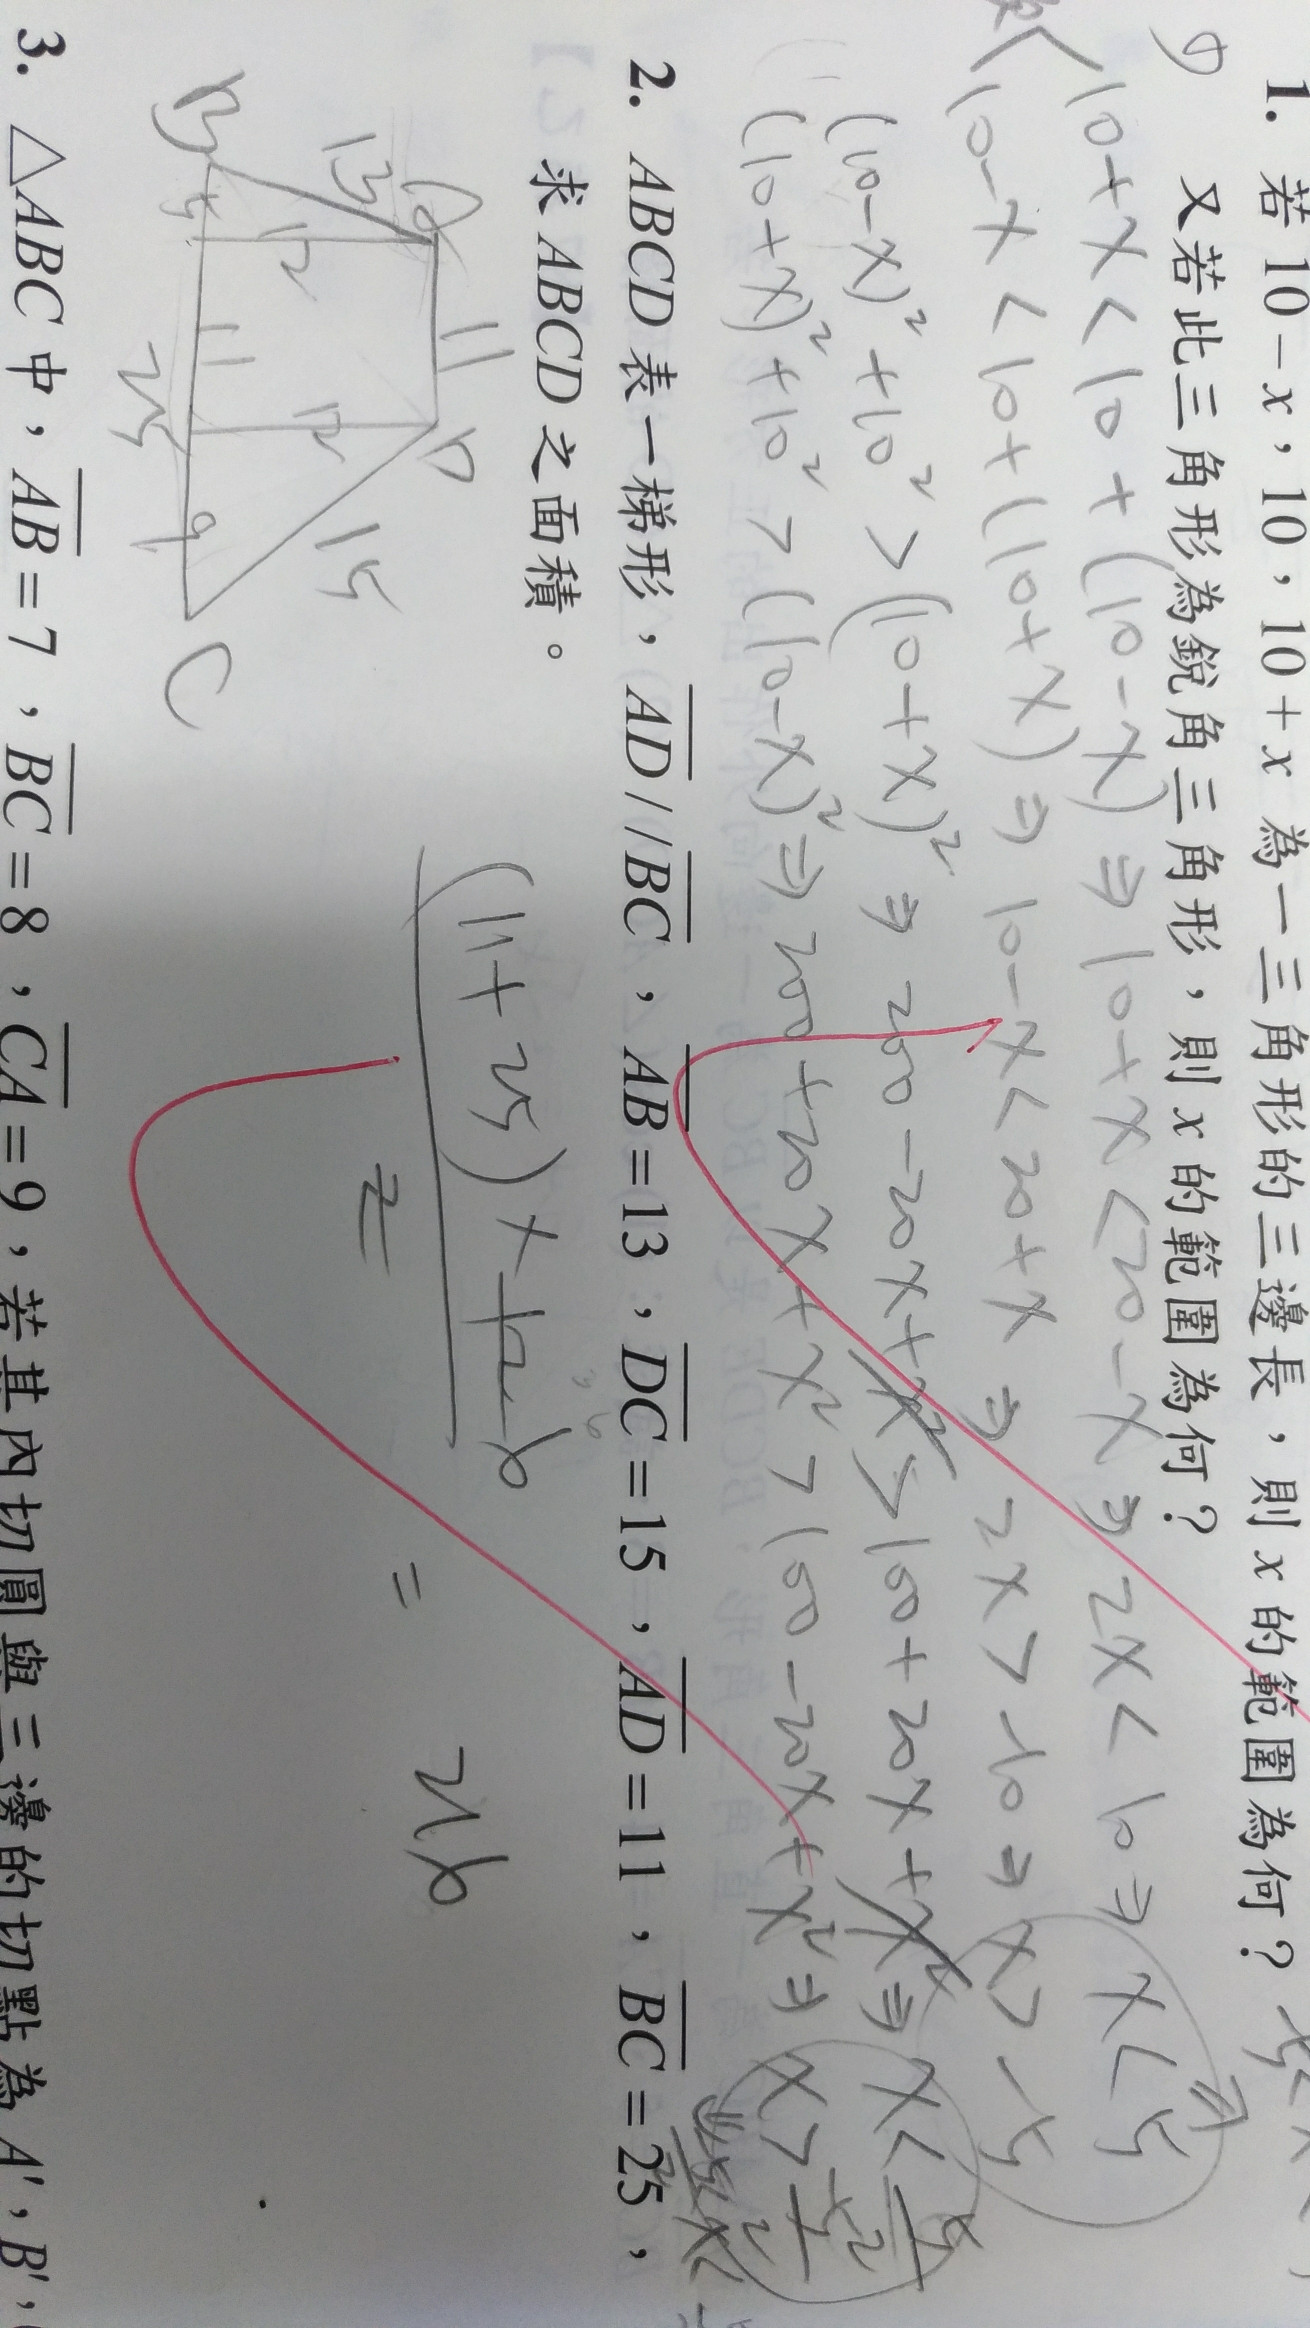 1. 若 10－x，10，10＋x 為一三角形的三邊長，則 x 的範圍為何？
又若此三角形為銳角三角形，則 x 的範圍為何？
10+x<10+(10-x)⇒10+x<20-x⇒2x<10⇒x<5
10-x<10+(10+x)⇒10-x<20+x⇒2x>-10⇒x>-5
(10-x)²+10²>(10+x)²⇒200-20x+x²>100+20x+x²⇒x<5/2
(10+x)²+10²>(10-x)²⇒200+20x+x²>100-20x+x²⇒x>-5/2
2. ABCD 表一梯形，AD//BC，AB＝13，DC＝15，AD＝11，BC＝25，
求 ABCD 之面積。
A 11 D
13 12 12 15
B 5 11 9 C
25
(11+25)×12 6
2
= 216
3. △ABC 中，AB＝7，BC＝8，CA＝9，若其內切圓與三邊的切點為 A'，B'，